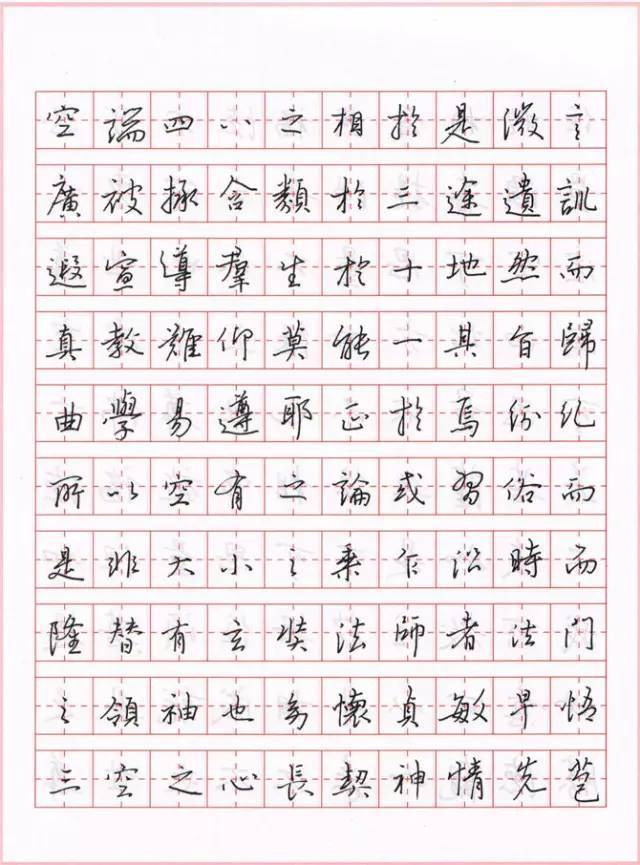 空端四八之相於是微言
廣被拯含類於三途遺訓
遐宣導羣生於十地然而
真教難仰莫能一其旨歸
曲學易遵耶正於焉紛糺
所以空有之論或習俗而
是非大小之乘乍沿時而
隆替有玄奘法師者法門
之領袖也幼懷貞敏早悟
三空之心長契神情先苞